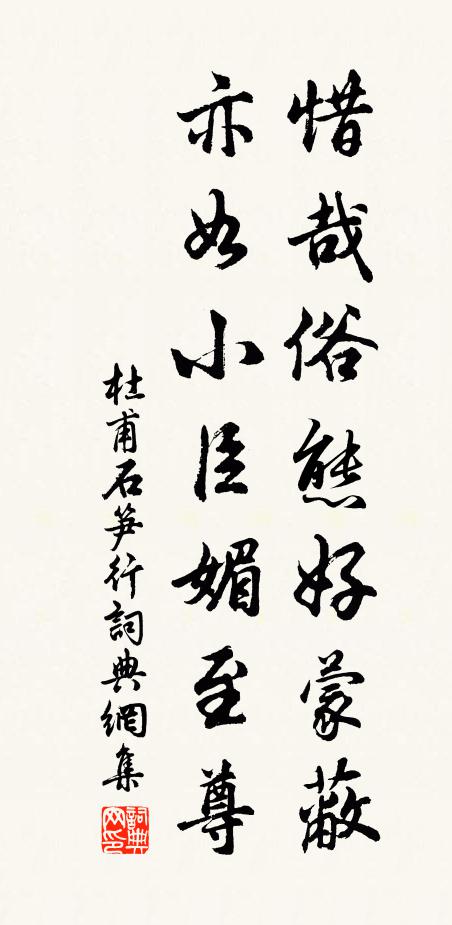 惜哉俗態好蒙蔽
亦如小臣媚至尊
杜甫石笋行詞典網集
詞典網印